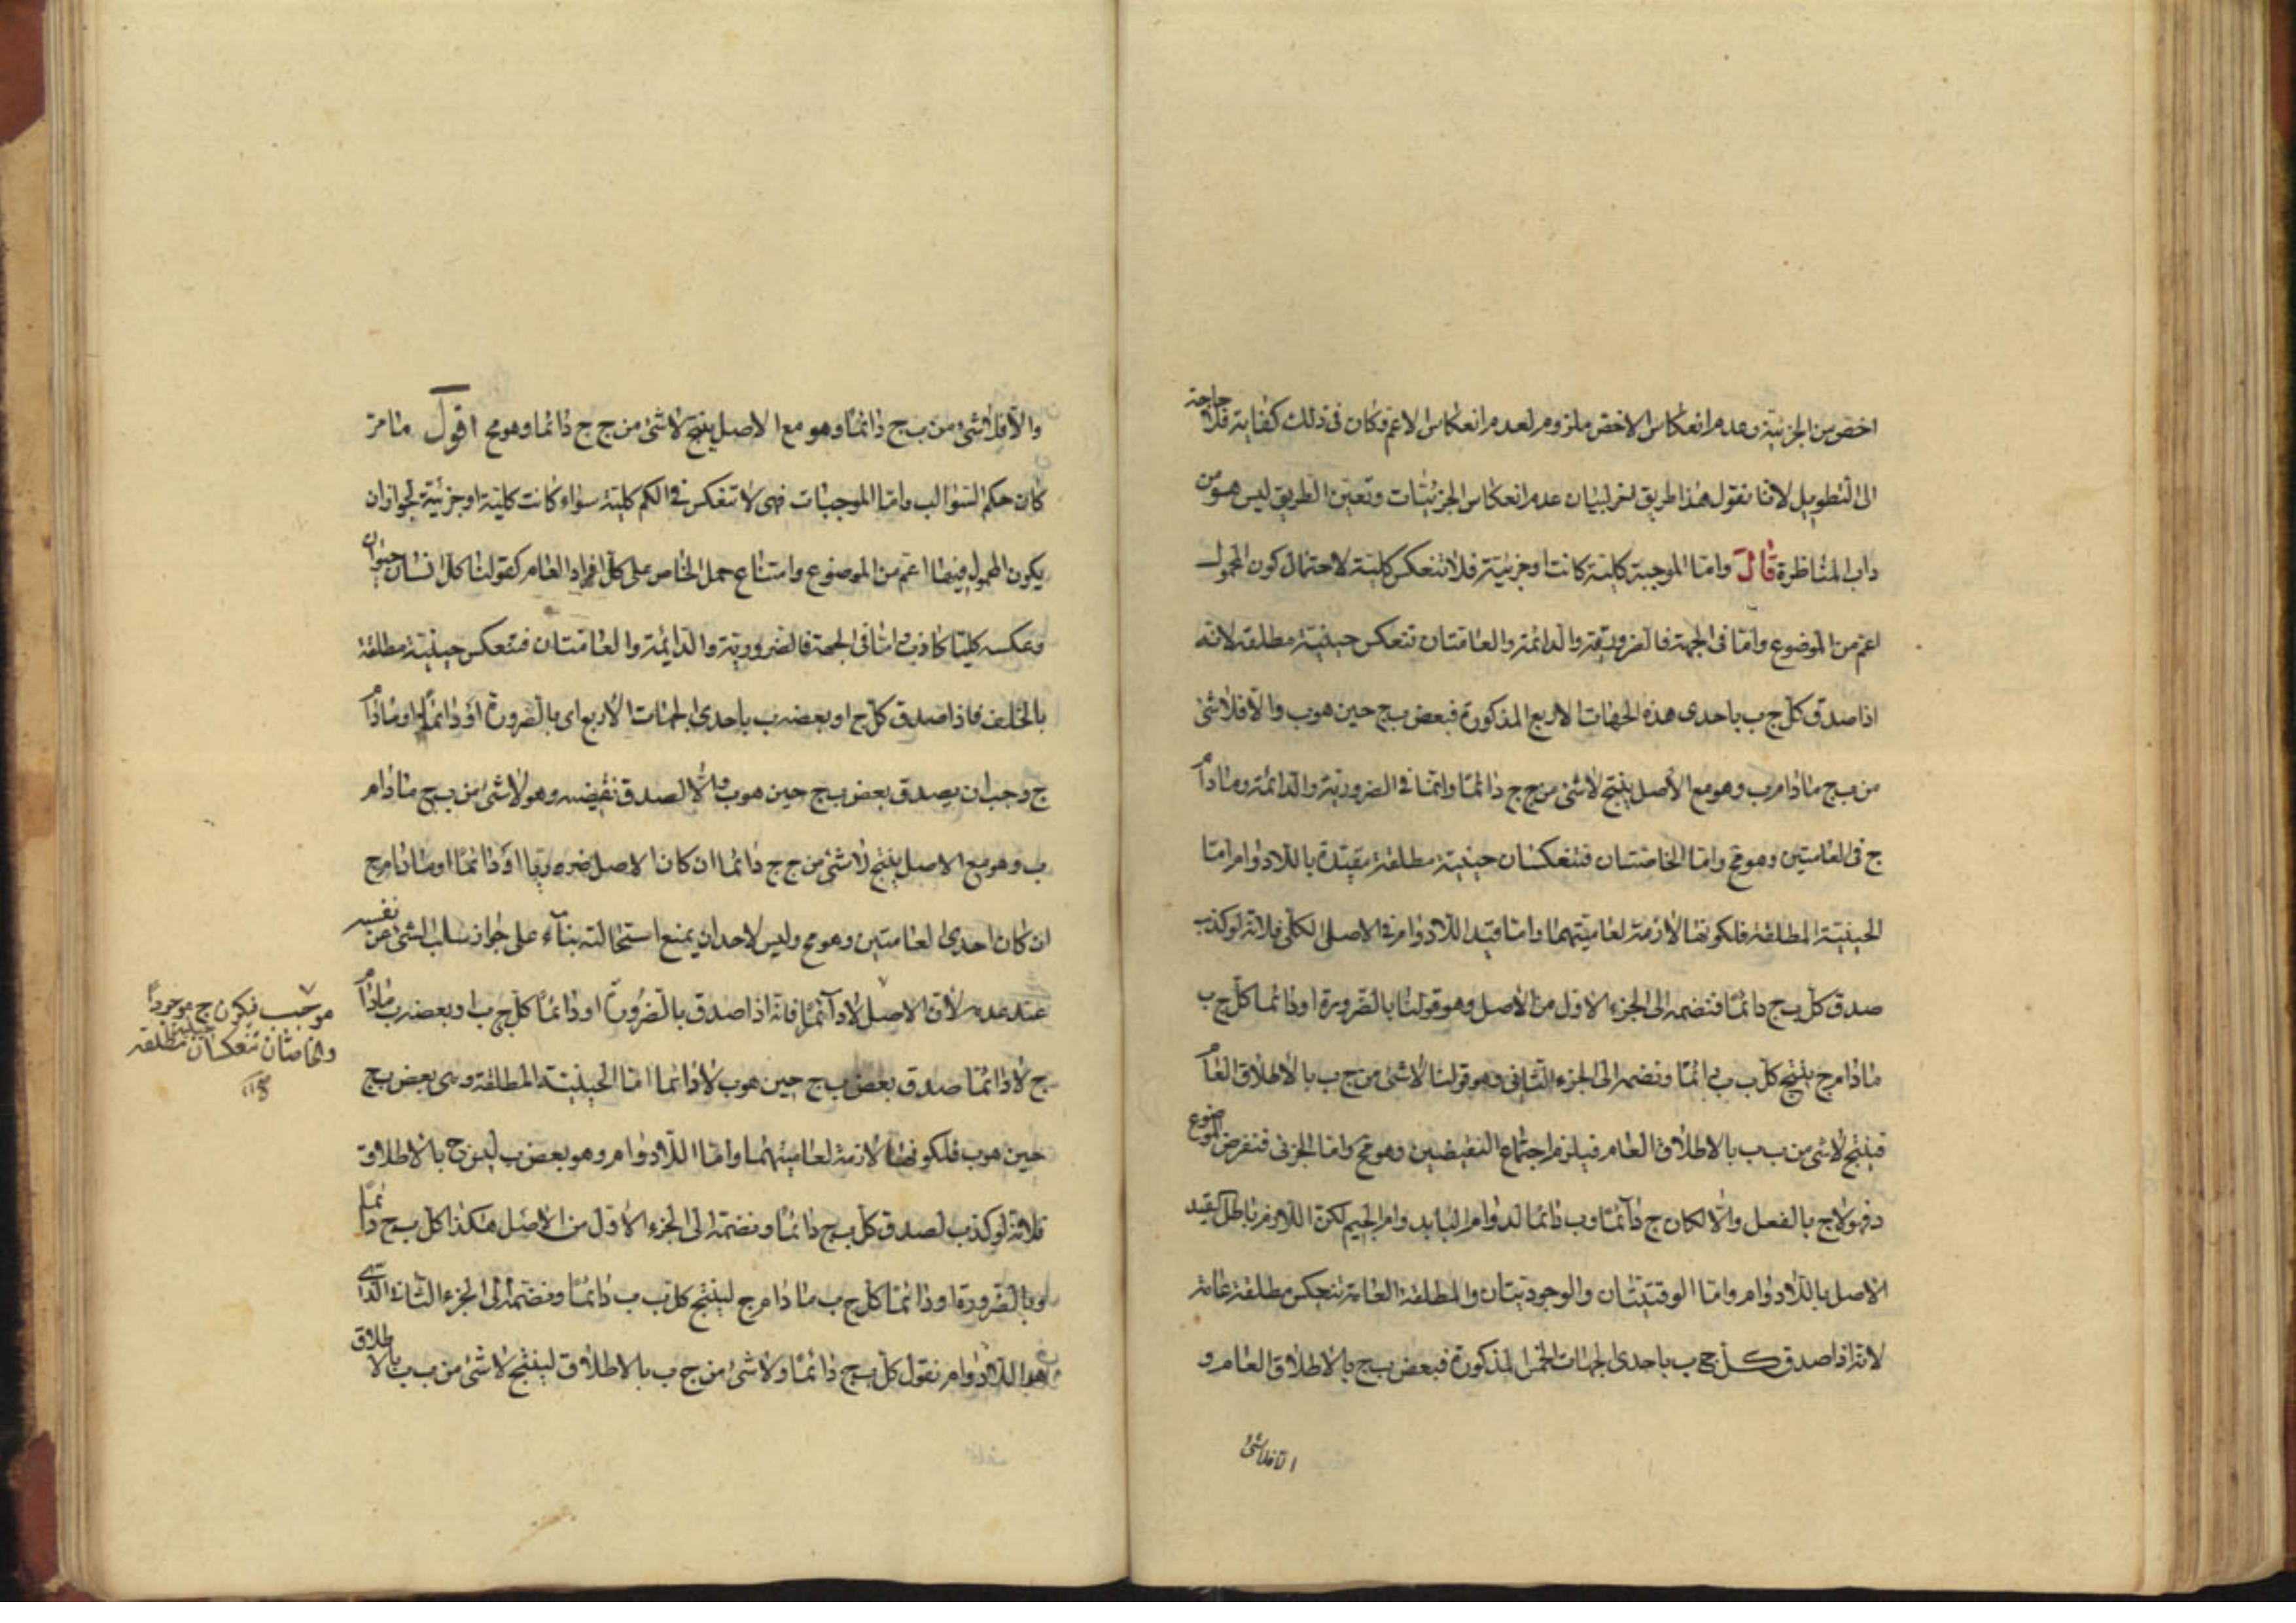 اخص من الجزئية وعدم انعكاس الاخص ملزوم لعدم انعكاس الاعم فكان فى ذلك كفاية فلا حاجة
الى التطويل لانا نقول هذا طريق اخر لبيان عدم انعكاس الجزئيات وتعين الطريق ليس هو من
داب المناظرة قال واما الموجبة كلية كانت او جزئية فلا تنعكس كلية لاحتمال كون المحمول
اعم من الموضوع واما فى الجهة فالضرورية والدائمة والعامتان تنعكس حينية مطلقة لانه
اذا صدق كل ج ب باحدى هذه الجهات الاربع المذكورة فبعض ب ج حين هو ب والا فلا شئ
من ب ج مادام ب وهو مع الاصل ينتج لا شئ من ج ج دائما واما فى الضرورية والدائمة ومادام
ج فى العامتين وهو مح واما الخاصتان فتنعكسان حينية مطلقة مقيدة باللادوام اما
الحينية المطلقة فلكونها لازمة لعاميتهما واما قيد اللادوام فى الاصل الكلى فلانه لو كذب
صدق كل ب ج دائما فتضمه الى الجزء الاول من الاصل وهو قولنا بالضرورة او دائما كل ج ب
مادام ج ينتج كل ب ب دائما ونضمه الى الجزء الثانى وهو قولنا لا شئ من ج ب بالاطلاق العام
فينتج لا شئ من ب ب بالاطلاق العام فيلزم اجتماع النقيضين وهو مح واما الجزئى فنفرض الموضوع
د فهو لا ج بالفعل والا لكان ج دائما و ب دائما لدوام الباء بدوام الجيم لكن اللازم باطل لقيد
الاصل باللادوام واما الوقتيتان والوجوديتان والمطلقة العامة تنعكس مطلقة عامة
لانه اذا صدق كل ج ب باحدى الجهات الخمس المذكورة فبعض ب ج بالاطلاق العام و
الا فلا شئ
والا فلا شئ من ب ج دائما وهو مع الاصل ينتج لا شئ من ج ج دائما وهو مح اقول ما مر
كان حكم السوالب واما الموجبات فهى لا تنعكس فى الكم كلية سواء كانت كلية او جزئية لجواز ان
يكون المحمول فيها اعم من الموضوع وامتناع حمل الخاص على كل افراد العام كقولنا كل انسان حيوان
وعكسه كليا كاذب اما فى الجهة فالضرورية والدائمة والعامتان فتنعكس حينية مطلقة
بالخلف فاذا صدق كل ج او بعضه ب باحدى الجهات الاربع اى بالضرورة او دائما او مادام
ج وجب ان يصدق بعض ب ج حين هو ب والا لصدق نقيضه وهو لا شئ من ب ج مادام
ب وهو مع الاصل ينتج لا شئ من ج ج دائما ان كان الاصل ضروريا او دائما او مادام ج
ان كان احدى العامتين وهو مح وليس لاحد ان يمنع استحالته بناء على جواز سلب الشئ عن نفسه
عند عدمه لان الاصل لادائما فانه اذا صدق بالضرورة او دائما كل ج ب او بعضه ب مادام
ج لا دائما صدق بعض ب ج حين هو ب لا دائما اما الحينية المطلقة وهى بعض ب ج
حين هو ب فلكونها لازمة لعاميتهما واما اللادوام وهو بعض ب ليس ج بالاطلاق
فلانه لو كذب لصدق كل ب ج دائما ونضمه الى الجزء الاول من الاصل هكذا كل ب ج دائما
وبالضرورة او دائما كل ج ب مادام ج لينتج كل ب ب دائما ونضمه الى الجزء الثانى الذى
هو اللادوام نقول كل ب ج دائما ولا شئ من ج ب بالاطلاق لينتج لا شئ من ب ب بالاطلاق
موجب فيكون ج موجودا
والخاصتان تنعكسان حينية مطلقة
صح